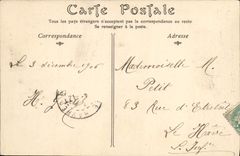 Carte Postale
Tous les pays étrangers n'acceptent pas la correspondance au recto
Se renseigner à la poste.
Correspondance
Adresse
Le 3 décembre 1906
Mademoiselle M.
Petit
H.
83 Rue d'
Le Hâvre
S. Infre